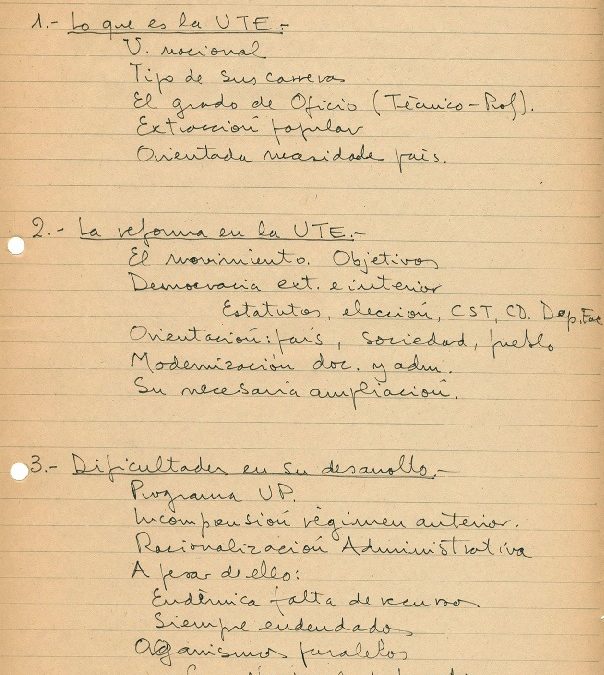 1.- Lo que es la UTE.-
U. nacional
Tipo de sus carreras
El grado de Oficio (Técnico-Prof).
Extracción popular
Orientada necesidades país.
2.- La reforma en la UTE.-
El movimiento. Objetivos
Democracia ext. e interior
Estatutos, elección, CST, CD. Dep. Fac
Orientación: país, sociedad, pueblo
Modernización doc. y adm.
Su necesaria ampliación.
3.- Dificultades en su desarrollo.-
Programa UP.
Incomprensión régimen anterior.
Racionalización Administrativa
A pesar de ello:
Endémica falta de recursos
Siempre endeudados
Organismos paralelos